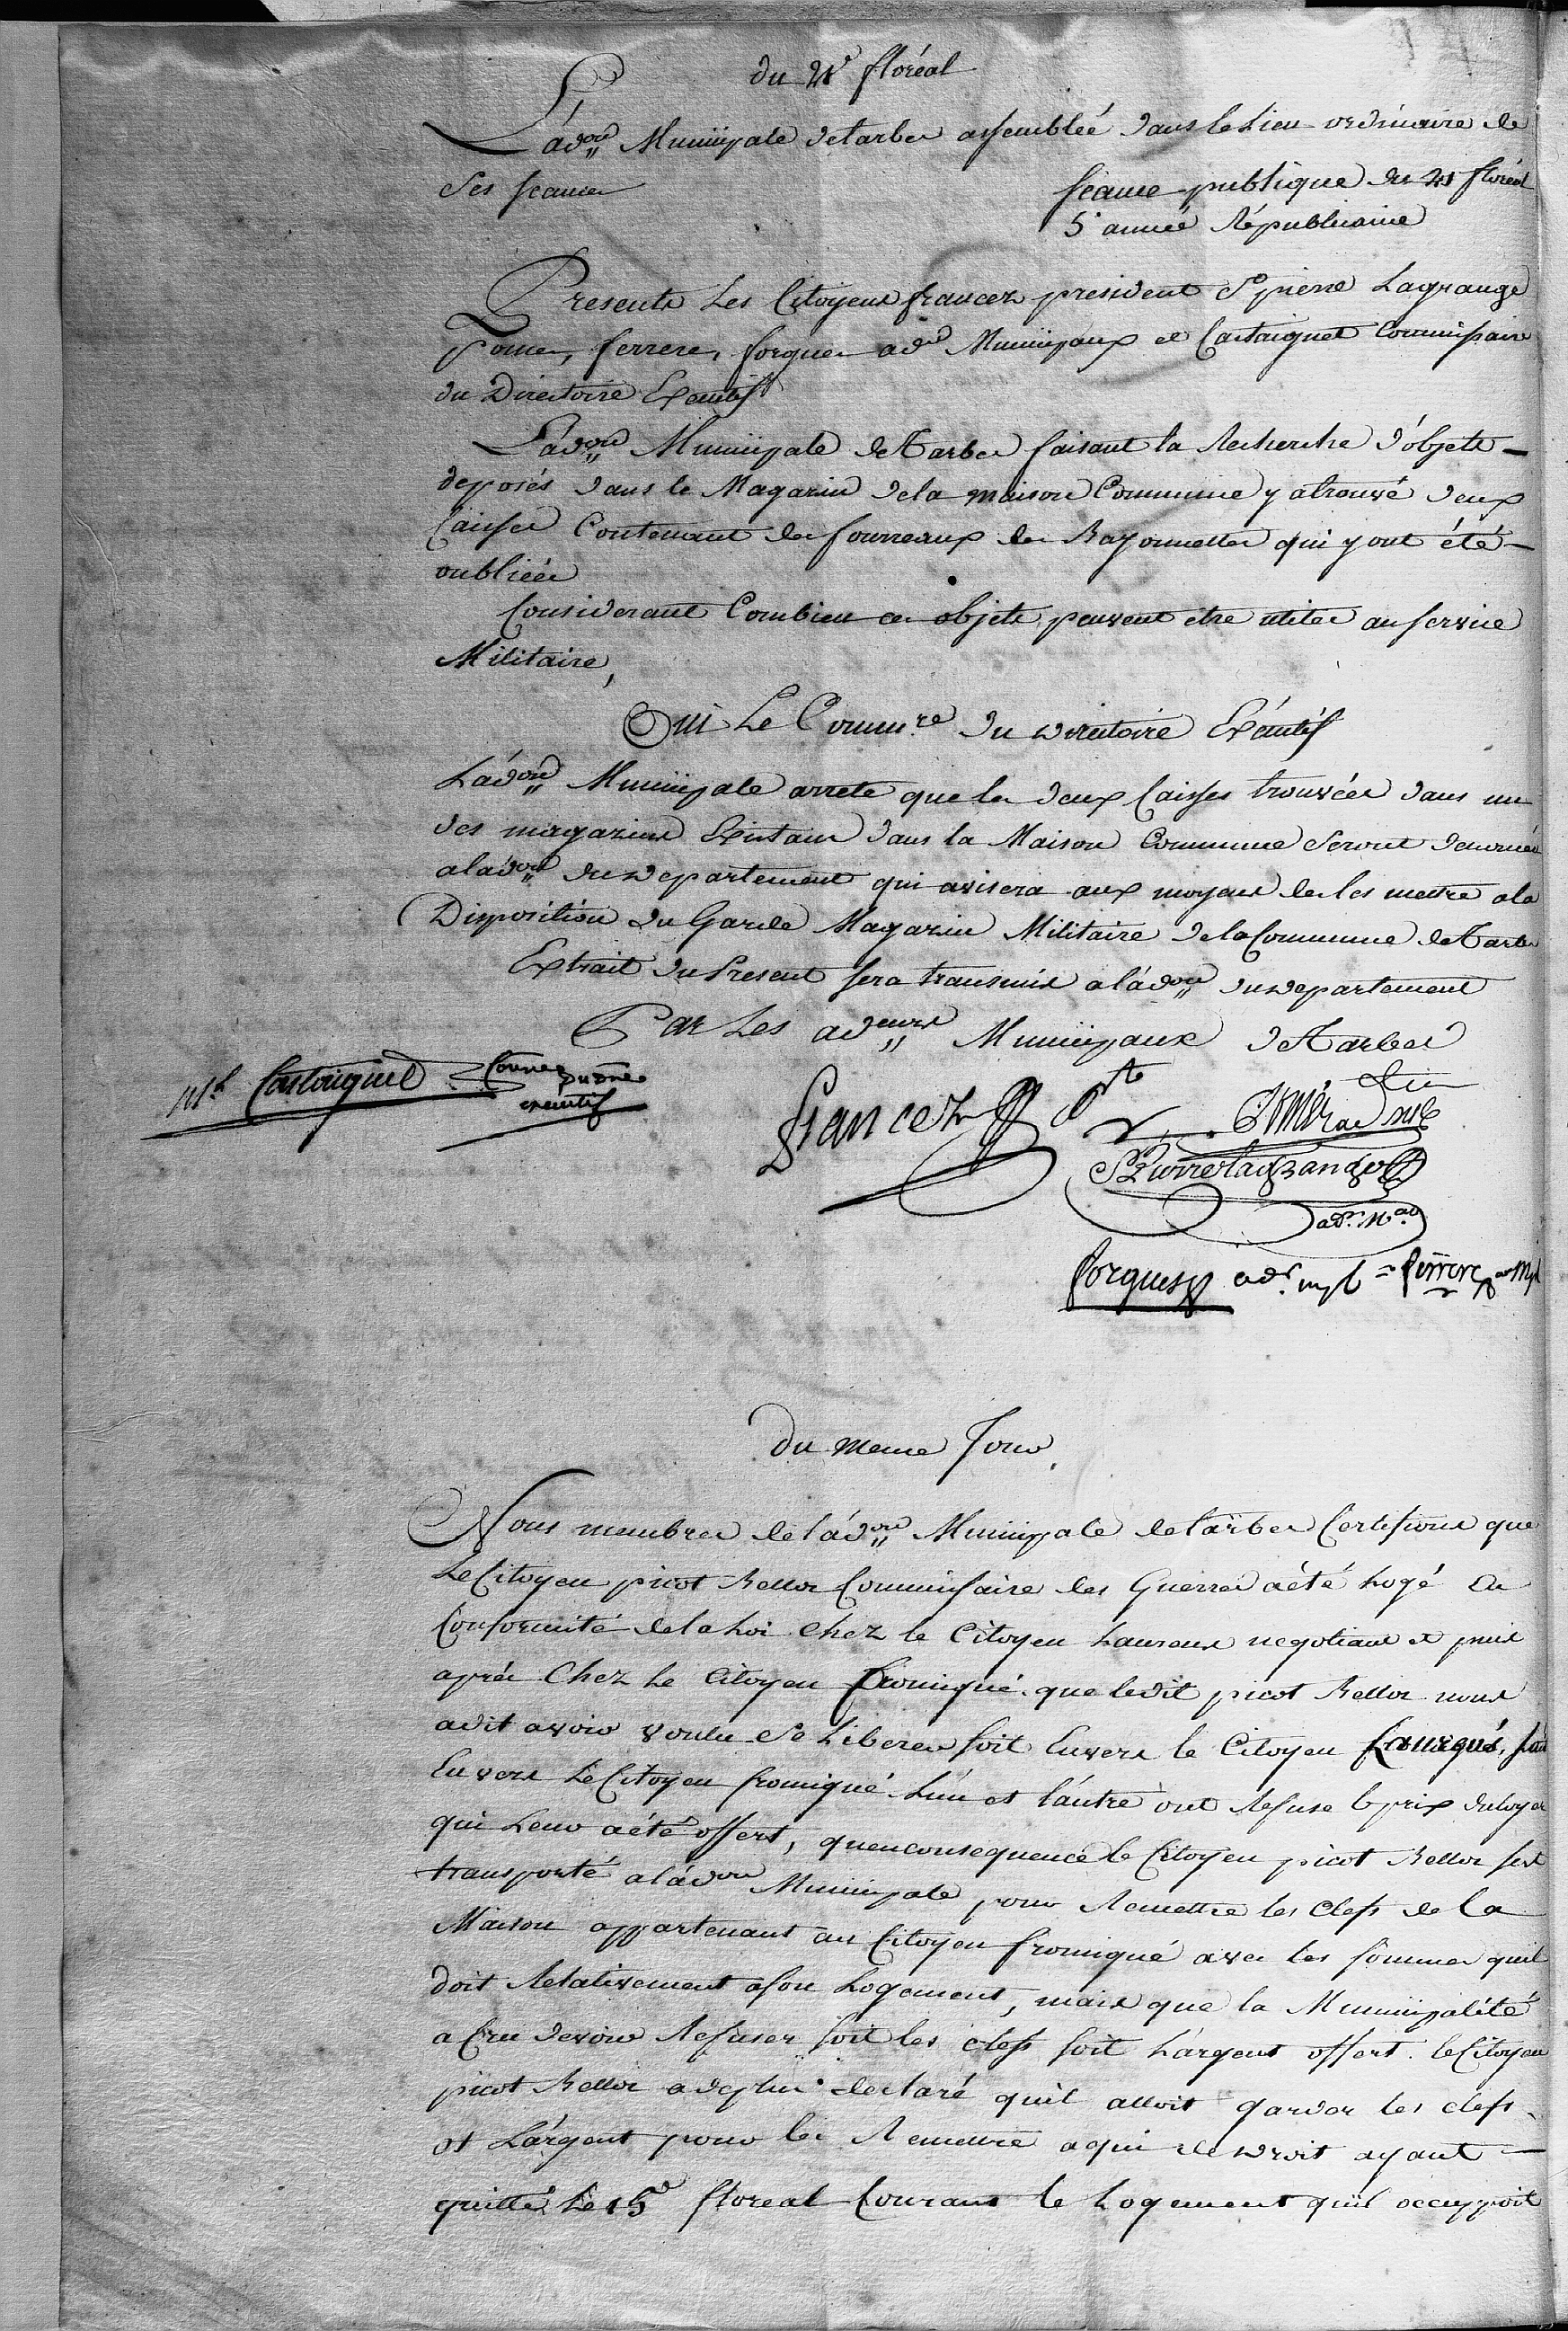 du 21e floréal
L'adon Municipale de tarbes assemblée dans le Lieu ordinaire de
Ses seances
seance publique du 21 floréal
5e année Républicaine
Presents Les Citoyens francez president St pierre Lagrange
Pomer, ferrere, forgues adrs Municipaux et Castaignet Commissaire
du Directoire Exécutif
L'adon Municipale de Tarbes faisant la Recherche d'objets
deposés dans le Magazin de la maison Commune y a trouvé deux
Caisses Contenant des fourreaux de Bayonnettes qui y ont été
oubliées
Considerant Combien ces objets peuvent etre utiles au service
Militaire,
Oui Le Commre du directoire Exécutif
L'adon Municipale arrete que les deux Caisses trouvées dans un
des magazins Existans dans la Maison Commune Seront
a l'adon du departement qui avisera aux moyens de les mettre a la
Disposition du Garde Magazin Militaire de la Commune de Tarbes
Extrait du Present sera transmis a l'adon du departement
Par Les adeurs Municipaux de Tarbes
Castaignet Comre du dre
executif
francez Pt
Pomér ad ml
St Pierre lagrange
adr. Mal
forgues adr. mpl = ferrere ar Mpl
Du meme Jour
Nous membres de l'adon Municipale de tarbes Certifions que
Le Citoyen picot Bellor Commissaire des Guerres a été Logé En
Conformité de la Loi chez le Citoyen Laurens negotiant et puis
après Chez Le Citoyen fromigué. que ledit picot Bellor nous
a dit avoir voulu Se Liberer soit Envers le Citoyen soit
Envers Le Citoyen fromigué. L'un et l'autre ont Refusé le prix du loyer
qui Leur a été offert, qu'en consequence le Citoyen picot Bellor s'est
transporté a l'adon Municipale pour Remettre les clefs de la
Maison appartenant au Citoyen fromigué avec les sommes qu'il
doit Relativement a son Logement, mais que la Municipalité
a Cru devoir Refuser soit les clefs soit L'argent offert. le Citoyen
picot Bellor a de plus declaré qu'il alloit garder les clefs
et L'argent pour les Remettre a qui de droit ayant
quitté Le 15e floreal Courant le Logement qu'il occuppoit